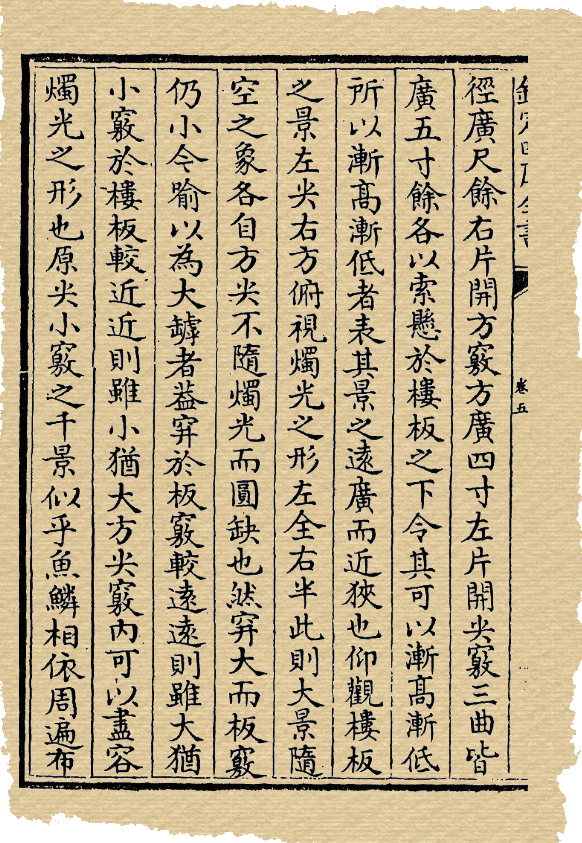 欽定四庫全書
卷五
徑廣尺餘右片開方竅方廣四寸左片開尖竅三曲皆
廣五寸餘各以索懸於樓板之下令其可以漸髙漸低
所以漸髙漸低者表其景之遠廣而近狹也仰觀樓板
之景左尖右方俯視燭光之形左全右半此則大景隨
空之象各自方尖不隨燭光而圓缺也然穽大而板竅
仍小今喻以為大罅者葢穽於板竅較遠遠則雖大猶
小竅於樓板較近近則雖小猶大方尖竅內可以盡容
燭光之形也原尖小竅之千景似乎魚鱗相依周遍布